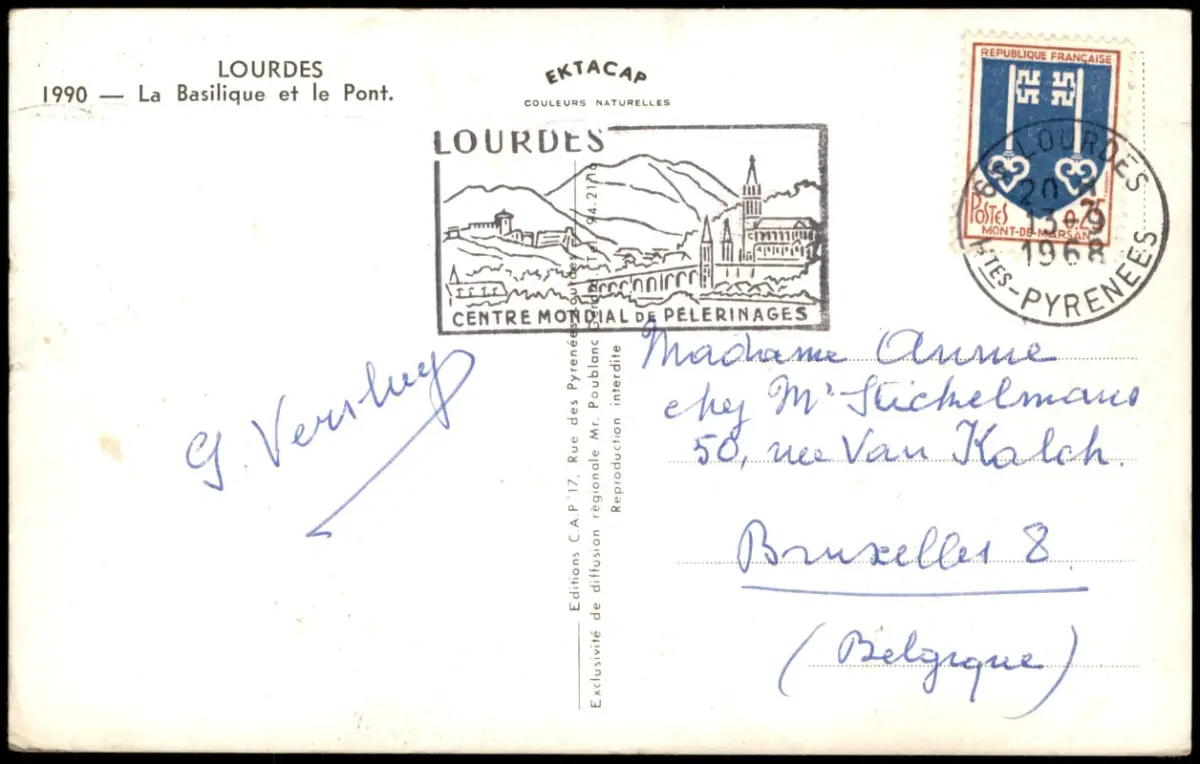 LOURDES
1990 — La Basilique et le Pont.
EKTACAP
COULEURS NATURELLES
LOURDES
CENTRE MONDIAL DE PELERINAGES
REPUBLIQUE FRANÇAISE
POSTES 0.25
MONT-DE-MARSAN
65 LOURDES
20 H
13-9
1968
Htes-PYRENEES
Editions C.A.P 17, Rue des Pyrénées
Exclusivité de diffusion régionale Mr. Poublanc Tél. 94-21-16
Reproduction interdite
G. Vers
Madame Anne
chez Mr Stichelmans
50, rue Van Kalch.
Bruxelles 8.
(Belgique)